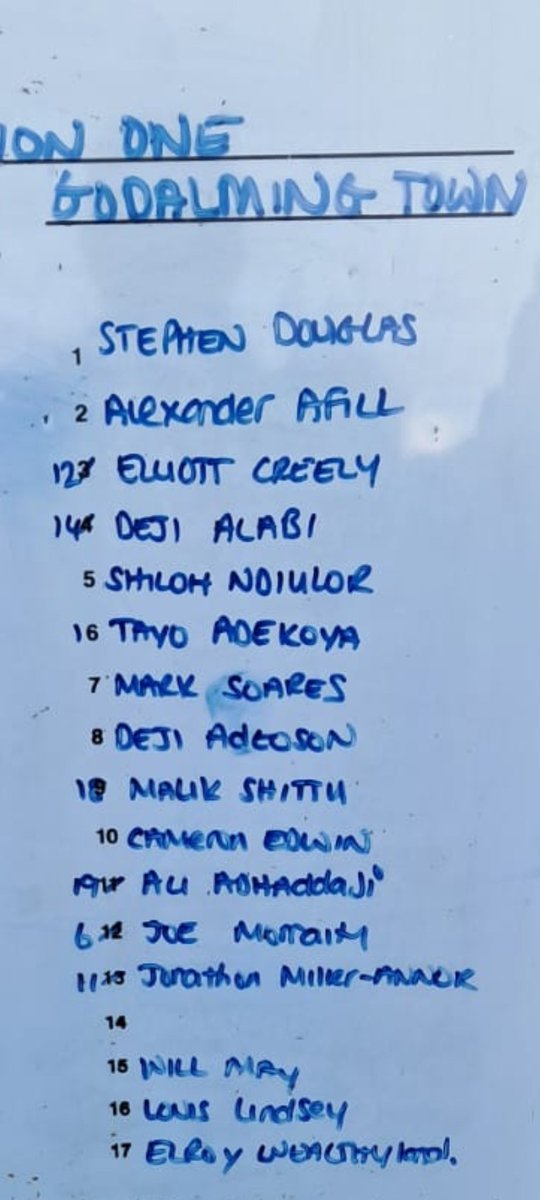 ION ONE
GODALMING TOWN
1 STEPHEN DOUGLAS
2 Alexander AFILL
12 ELLIOTT CREELY
14 DEJI ALABI
5 SHILOH NDIULOR
16 TAYO ADEKOYA
7 MARK SOARES
8 DEJI
18 MALIK SHITTU
10 CAMERON EDWIN
19 ALI
6 12 JOE
11 13 Jonathon Miller-ANNOR
14
15 WILL MAY
16 LOUIS Lindsey
17 ELROY